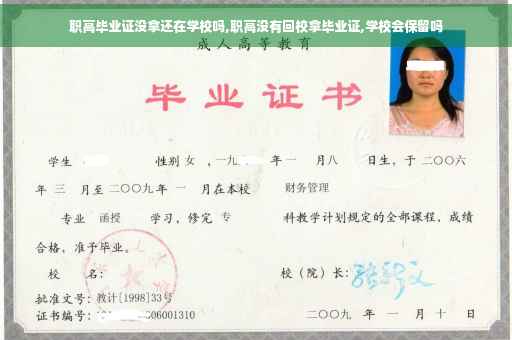 职高毕业证没拿还在学校吗,职高没有回校拿毕业证,学校会保留吗
成人高等教育
毕业证书
学生 性别 女 ,一九 年一 月八 日生,于二〇〇六
年 三 月至二〇〇九年 一 月在本校 财务管理
专业 函授 学习,修完 专 科教学计划规定的全部课程,成绩
合格,准予毕业。
校 名: 校(院)长:
批准文号:教计[1998]33号
证书编号: 06001310 二〇〇九 年 一 月 十 日